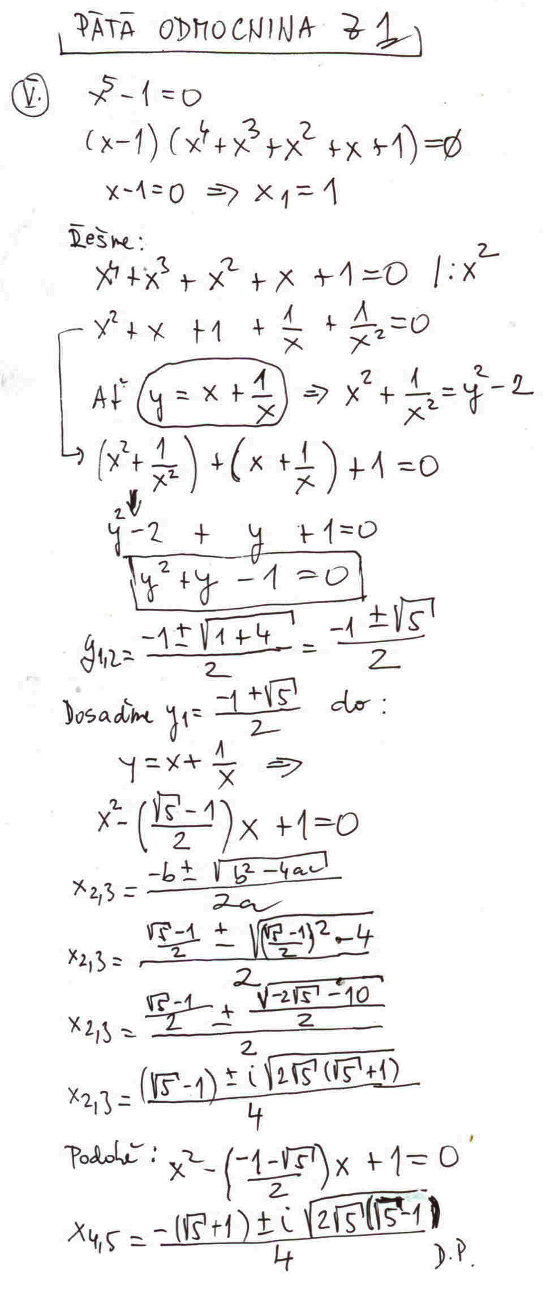 PÁTÁ ODMOCNINA Z 1
V. x⁵-1=0
(x-1)(x⁴+x³+x²+x+1)=∅
x-1=0 ⇒ x₁=1
Řešme:
x⁴+x³+x²+x+1=0 /:x²
x²+x+1+1/x+1/x²=0
Ať y=x+1/x ⇒ x²+1/x²=y²-2
→ (x²+1/x²)+(x+1/x)+1=0
y²-2+y+1=0
y²+y-1=0
y₁,₂=(-1±√(1+4))/2=(-1±√5)/2
Dosadíme y₁=(-1+√5)/2 do:
y=x+1/x ⇒
x²-((√5-1)/2)x+1=0
x₂,₃=(-b±√(b²-4ac))/2a
x₂,₃=((√5-1)/2±√(((√5-1)/2)²-4))/2
x₂,₃=((√5-1)/2±√(-2√5-10)/2)/2
x₂,₃=((√5-1)±i√(2√5(√5+1)))/4
Podobě: x²-((-1-√5)/2)x+1=0
x₄,₅=(-(√5+1)±i√(2√5(√5-1)))/4
D.P.